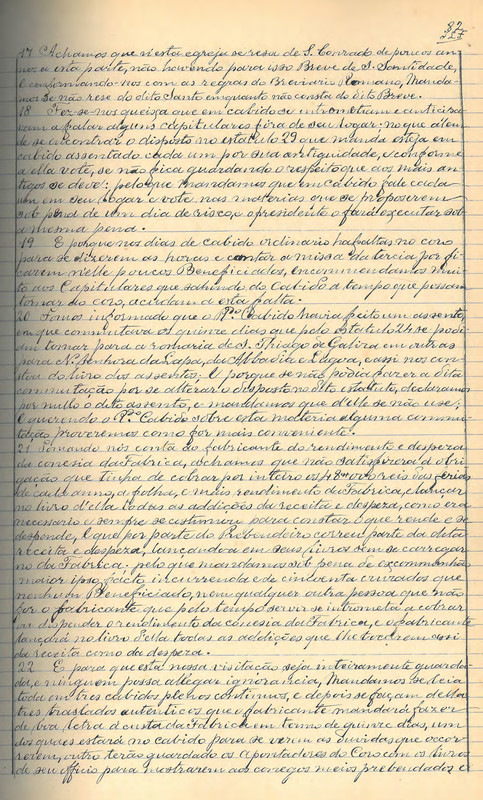 82
17 Achamos que n'esta egreja se resa de S. Conrado de poucos an-
nos e esta parte, não havendo para isso Breve de S. Santidade,
E conformando-nos com as regras do Breviario Romano, Manda-
mos se não rese do dito Santo em quanto não consta do dito Breve.
18 Foi-se nos queixa que em cabido se intromettiam e anticipa-
vam a fallar alguns capitulares fóra de seu logar: no que alem
de se encontrar o disposto no estatuto 29 que manda esteja em
cabido assentado cada um por sua antiguidade, e conforme
a ella vote, se não fica guardando o respeito que aos mais an-
tigos se deve: pelo que mandamos que em cabido falle cada
um em seu logar e vote nas materias que se proposerem
sob pena de um dia de risco, e o presidente o faça executar sob
a mesma pena.
19 E porque nos dias de cabido ordinario ha faltas no coro
para se dizerem as horas e cantar a missa da tercia por fi-
carem n'elle poucos Beneficiados, encommendamos mui-
to aos Capitulares que sahindo do Cabido a tempo que possam
tornar ao coro, acudam a esta falta.
20 Fomos informado que o R.do Cabido havia feito um assento,
em que commutava os quinze dias que pelo estatuto 24 se podi-
am tomar para a romaria de S. Thiago de Galiza em outras
para N. Senhora da Lapa, da Abbadia e Lagoa, e assi nos con-
stou do livro dos assentos; E porque se não podia fazer a dita
commutação por se alterar o disposto no dito estatuto, declaramos
por nullo o dito assento, e mandamos que d'elle se não use;
E querendo o R.do Cabido sobre esta materia alguma commu-
tação, proveremos como for mais conveniente.
21 Tomando nós conta ao fabricante do rendimento e despeza
da conesia da Fabrica, achamos que não satisfizera á obri-
gação que tinha de cobrar por inteiro os 48$000 reis das férias
de cada anno, a folha, e mais rendimento da Fabrica, e lançar
no livro d'ella todas as addições da receita e despeza, como era
necessario e sempre se costumou para constar o que rende e se
despende, E que por parte do Prebendeiro correu parte da dita
receita e despeza, lançando-a em seus livros sem se carregar
no da Fabrica: pelo que mandamos sob pena de excommunhão
maior ipso facto incurrenda e de cincoenta cruzados que
nenhum Beneficiado, nem qualquer outra pessoa que não
for o fabricante que pelo tempo servir se intrometta a cobrar
ou dispender o rendimento da conesia da Fabrica, e o fabricante
lançará no livro d'ella todas as addições que lhe tocarem assi
da receita como da despeza.
22 E para que esta nossa visitação seja inteiramente guarda-
da, e ninguem possa allegar ignorancia, Mandamos se leia
toda em tres cabidos plenos continuos, e depois se façam d'ella
tres traslados autenticos que o fabricante mandará fazer
de boa letra á custa da Fabrica em termo de quinze dias, um
dos quaes estará no cabido para se verem as duvidas que occor-
rerem, outro terão guardado os apontadores do Coro com os livros
de seu officio para mostrarem aos conegos meios prebendados e